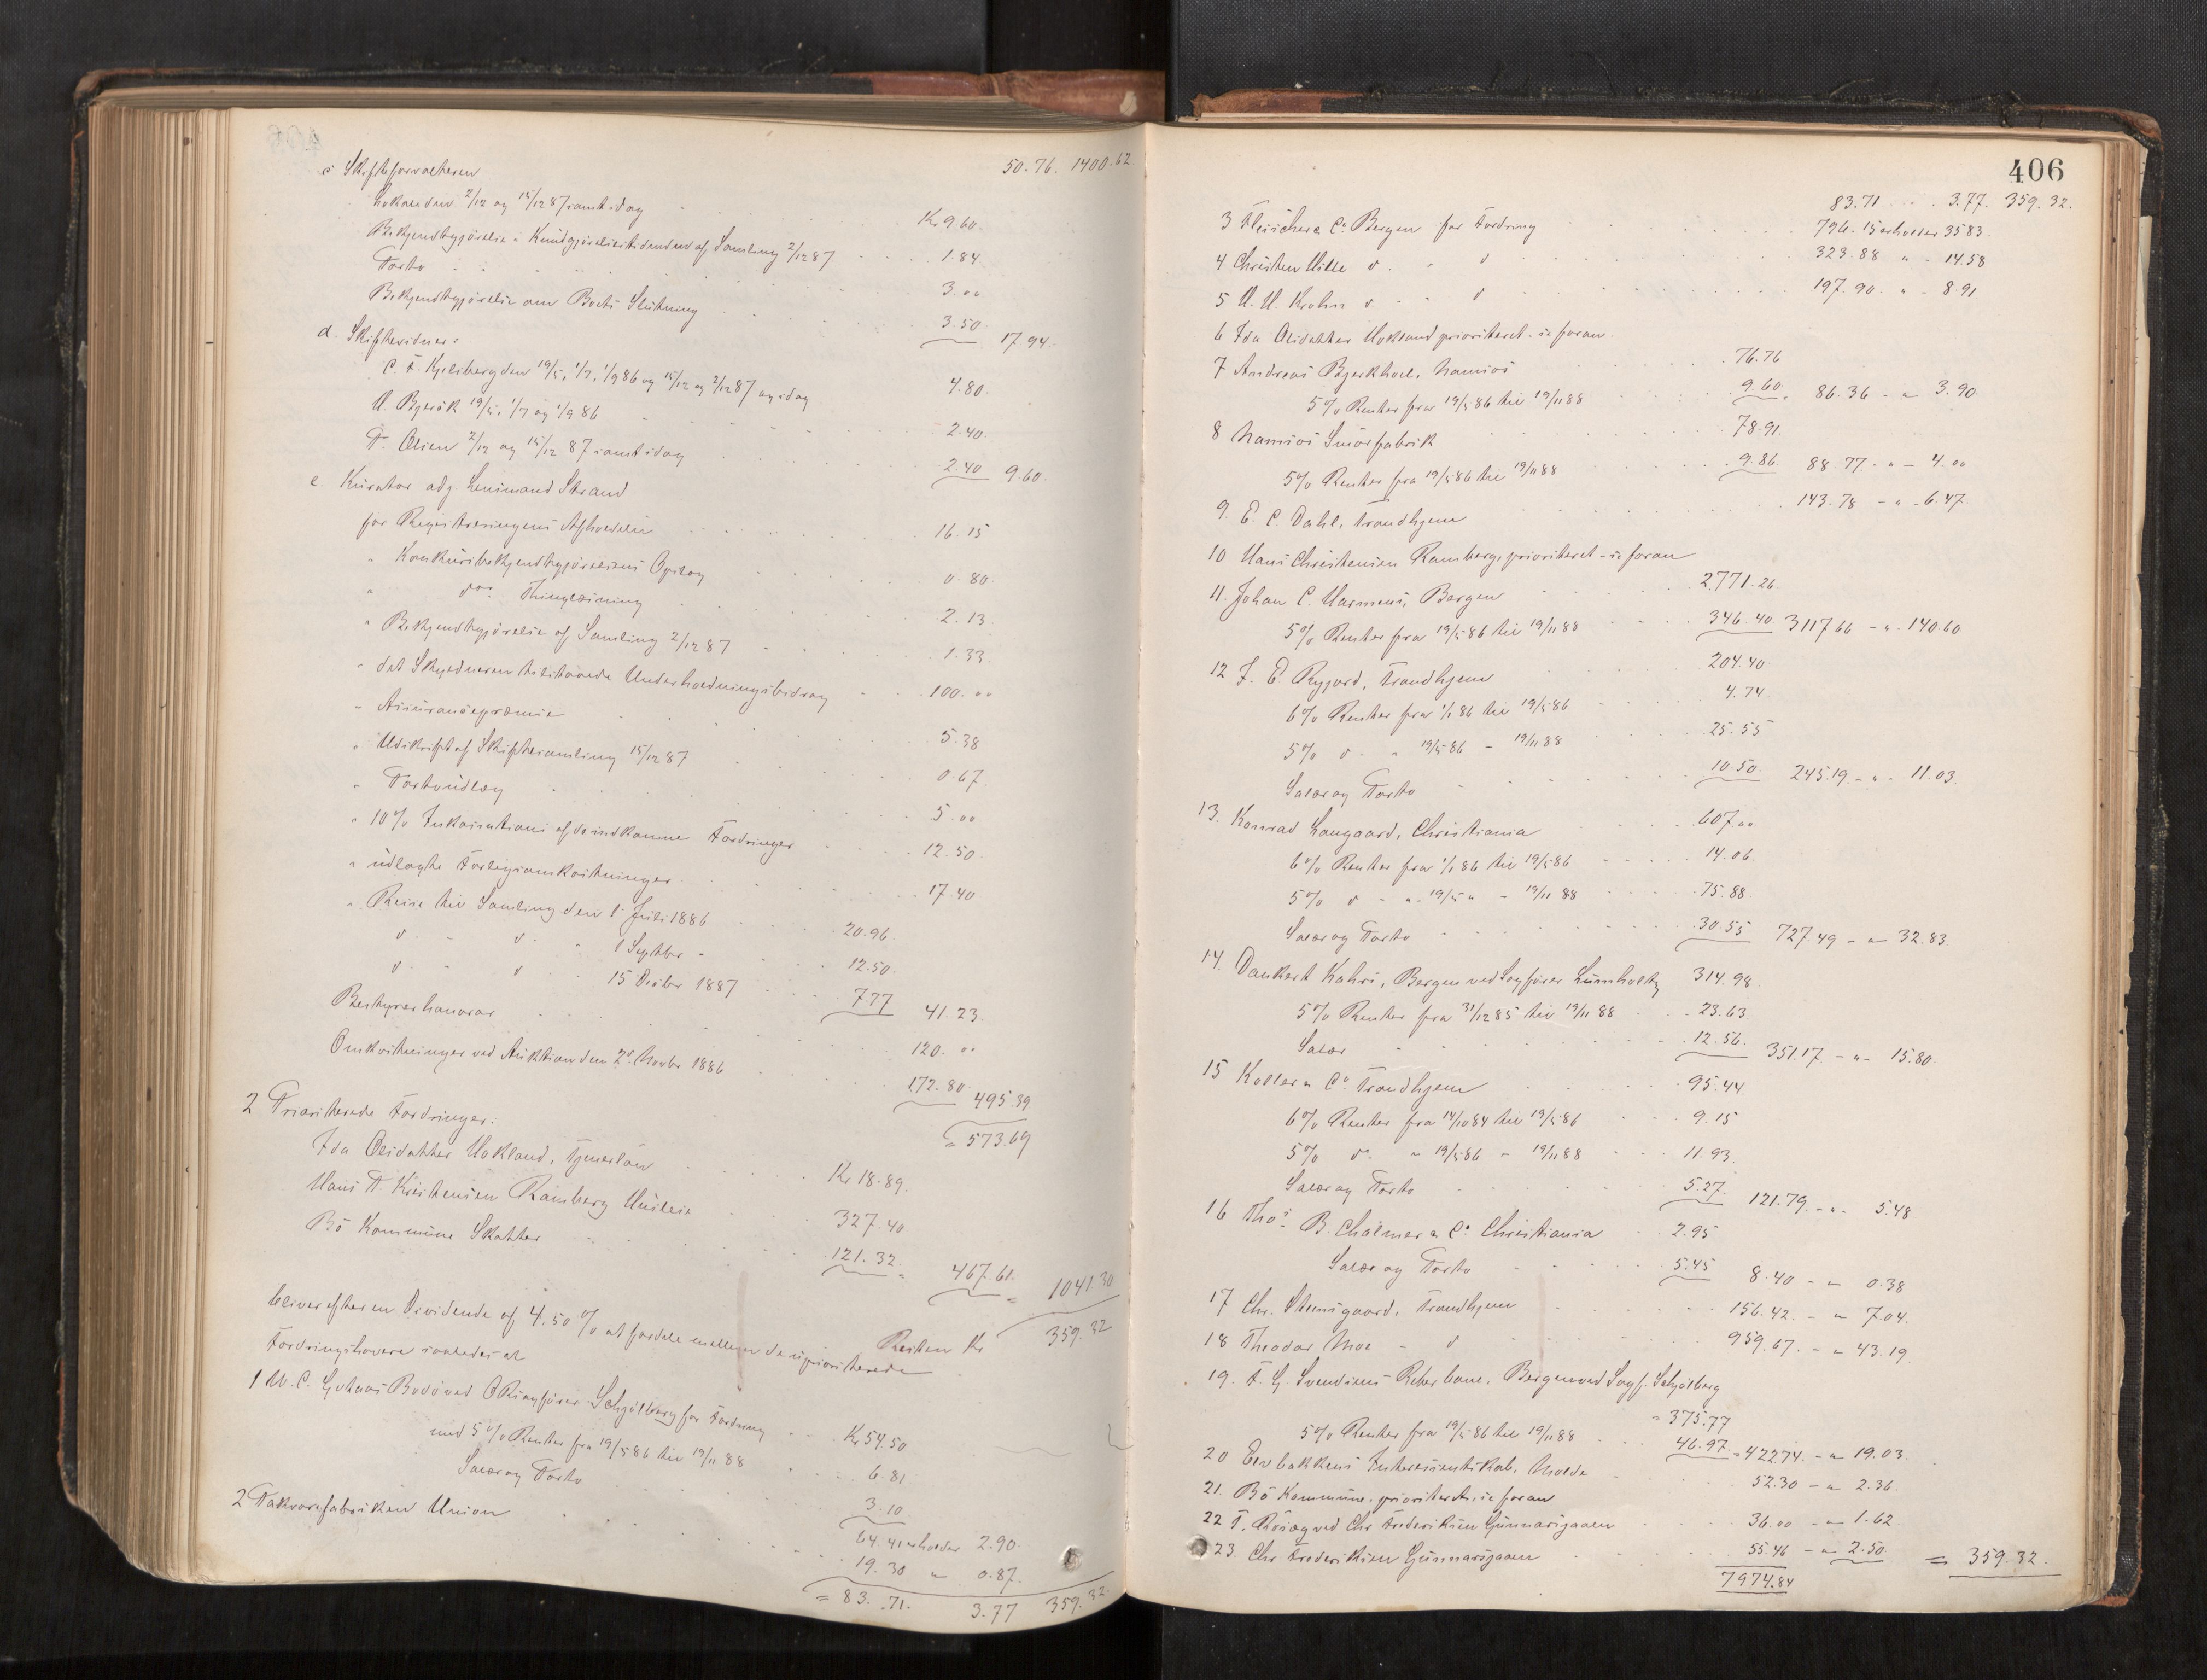 50.76. 1400.62
c Skifteforvalteren
Lokalen den 2/12 og 15/12 87 samt idag Kr 9.60.
Bekjendtgjørelse i Kundgjørelsestidenden af Samling 2/12 87 1.84
Porto 3.00
Bekjendtgjørelse om Boets Slutning 3.50 17.94.
d. Skiftevidner:
C. F. Kjelsberg den 19/5, 1/7, 1/9 86 og 15/12 og 2/12 87 og idag 4.80.
H. Bjerök 19/5, 1/7 og 1/9 86 2.40.
P. Olsen 2/12 og 15/12 87 samt idag 2.40 9.60.
e. Kurator adg. Lensmand Strand
for Registreringens Afholdelse 16.15
" Konkursbekjendtgjørelsens Opslag 0.80.
" do Thinglæsning 2.13.
" Bekjendtgjørelse af Samling 2/12 87 1.33.
" det Skyldneren tilstaaede Underholdningsbidrag 100.00
" Assurancepræmie 5.38
" Udskrift af Skiftesamling 15/12 87 0.67.
" Portoudlæg 5.00
" 10% Inkassation af de indkomne Fordringer 12.50.
" udlagte Forligsomkostninger 17.40
" Reise til Samling den 1 Juli 1886 20.96.
d - d - 1 Septbr " 12.50.
d - d - 15 Decbr 1887 7.77 41.23.
Bestyrerhonorar 120.00
Omkostninger ved Auktion den 2d Novbr 1886 172.80. 495.39
= 573.69
2 Prioriterede Fordringer:
Ida Olsdatter Hokland, Tjenerløn Kr 18.89.
Hans P. Kristensen Ramberg Husleie 327.40
Bö Kommune Skatter 121.32. 467.61. = 1041.30
Resten Kr 359.32
bliver efter en Dividende af 4.50% at fordele mellem de uprioriterede
Fordringshavere saaledes at
1 W. C. Gotaas Bodö ved O.R.Sagfører Schjölberg for Fordring Kr 54.50
med 5% Renter fra 19/5 86 til 19/11 88 6.81
Salær og Porto 3.10
64.41 erholder 2.90.
2 Takvarefabriken Union 19.30 " 0.87.
= 83.71. 3.77 359.32
406
83.71 3.77. 359.32.
3 Fleischer & Co Bergen for Fordring 796.15 erholder 35 83.
4 Christen Wille d. " d 323.88 " - 14.58
5 H. H. Krohn d - " d 197.90. " - 8.91
6 Ida Olsdatter Hokland prioriteret - se foran.
7 Andreas Bjerkhoel, Namsos 76.76
5% Renter fra 19/5 86 til 19/11 88 9.60. 86.36 - " 3.90.
8 Namsos Smörfabrik 78.91.
5% Renter fra 19/5 86 til 19/11 88 9.86. 88.77 - " - 4.00
9. E. C. Dahl, Trondhjem 143.78 - " - 6.47.
10 Hans Christensen Ramberg, prioriteret - se foran
11. Johan C. Harmens, Bergen 2771.26.
5% Renter fra 19/5 86 til 19/11 88 346.40 3117 66 - " - 140.60
12 J. E. Rygaard, Trondhjem 204.40.
6% Renter fra 1/1 86 til 19/5 86 4.74
5% d - " 19/5 86 - 19/11 88 25.55
Salær og Porto 10.50. 245.19. - " - 11.03.
13. Konrad Langaard, Christiania 607.00
6% Renter fra 1/1 86 til 19/5 86 14.06.
5% d - " - 19/5 " - 19/11 88 75.88.
Salær og Porto 30.55 727.49 - " 32.83.
14. Dankert Kahrs, Bergen ved Sagfører Lumholtz 314.98.
5% Renter fra 31/12 85 til 19/11 88 23.63.
Salær 12.56. 351.17. - " - 15.80.
15 Koller & Co Trondhjem 95.44
6% Renter fra 14/10 84 til 19/5 86 9.15
5% d. " 19/5 86 - 19/11 88 11.93.
Salær og Porto 5.27. 121.79. - " - 5.48
16 Thos B. Chalmer & Co Christiania 2.95
Salær og Porto 5.45 8.40 - " 0.38
17 Chr. Steensgaard, Trondhjem 156.42. - " 7.04.
18 Theodor Moe - d 959.67. - " 43.19.
19. F. G. Svendsens Reberbane, Bergen ved Sagf. Schjölberg
= 375.77
5% Renter fra 19/5 86 til 19/11 88 46.97. = 422 74. - " 19.03.
20 Elvbakkens Interessentskab, Molde 52.30 - " 2.36.
21. Bö Kommune - prioriteret, se foran
22 P. Rösæg ved Chr Frederiksen Gunnarsjaaen 36.00 - " 1.62.
23. Chr Frederiksen Gunnarsjaaen 55.46 - " 2.50. = 359.32.
7974.84